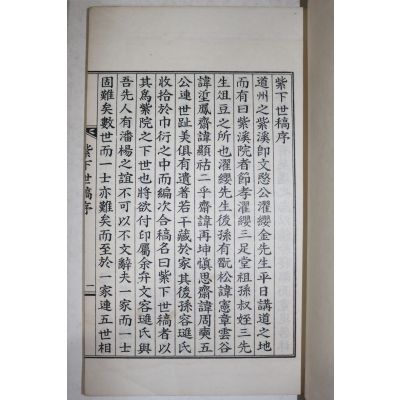 紫下世稿序
道州之紫溪卽文愍公濯纓金先生平日講道之地
而有曰紫溪院者節孝濯纓三足堂祖孫叔姪三先
生俎豆之所也濯纓先生後孫有翫松諱憲章雲谷
諱埅鳳齋諱顯祜二乎齋諱再坤愼思齋諱周奭五
公連世趾美俱有遺著若干藏于家其後孫容璡氏
收拾於巾衍之中而編次合稿名曰紫下世稿者以
其爲紫院之下世也將欲付印屬余弁文容璡氏與
吾先人有潘楊之誼不可以不文辭夫一家而一士
固難矣數世而一士亦難矣而至於一家連五世相
紫下世稿序
二